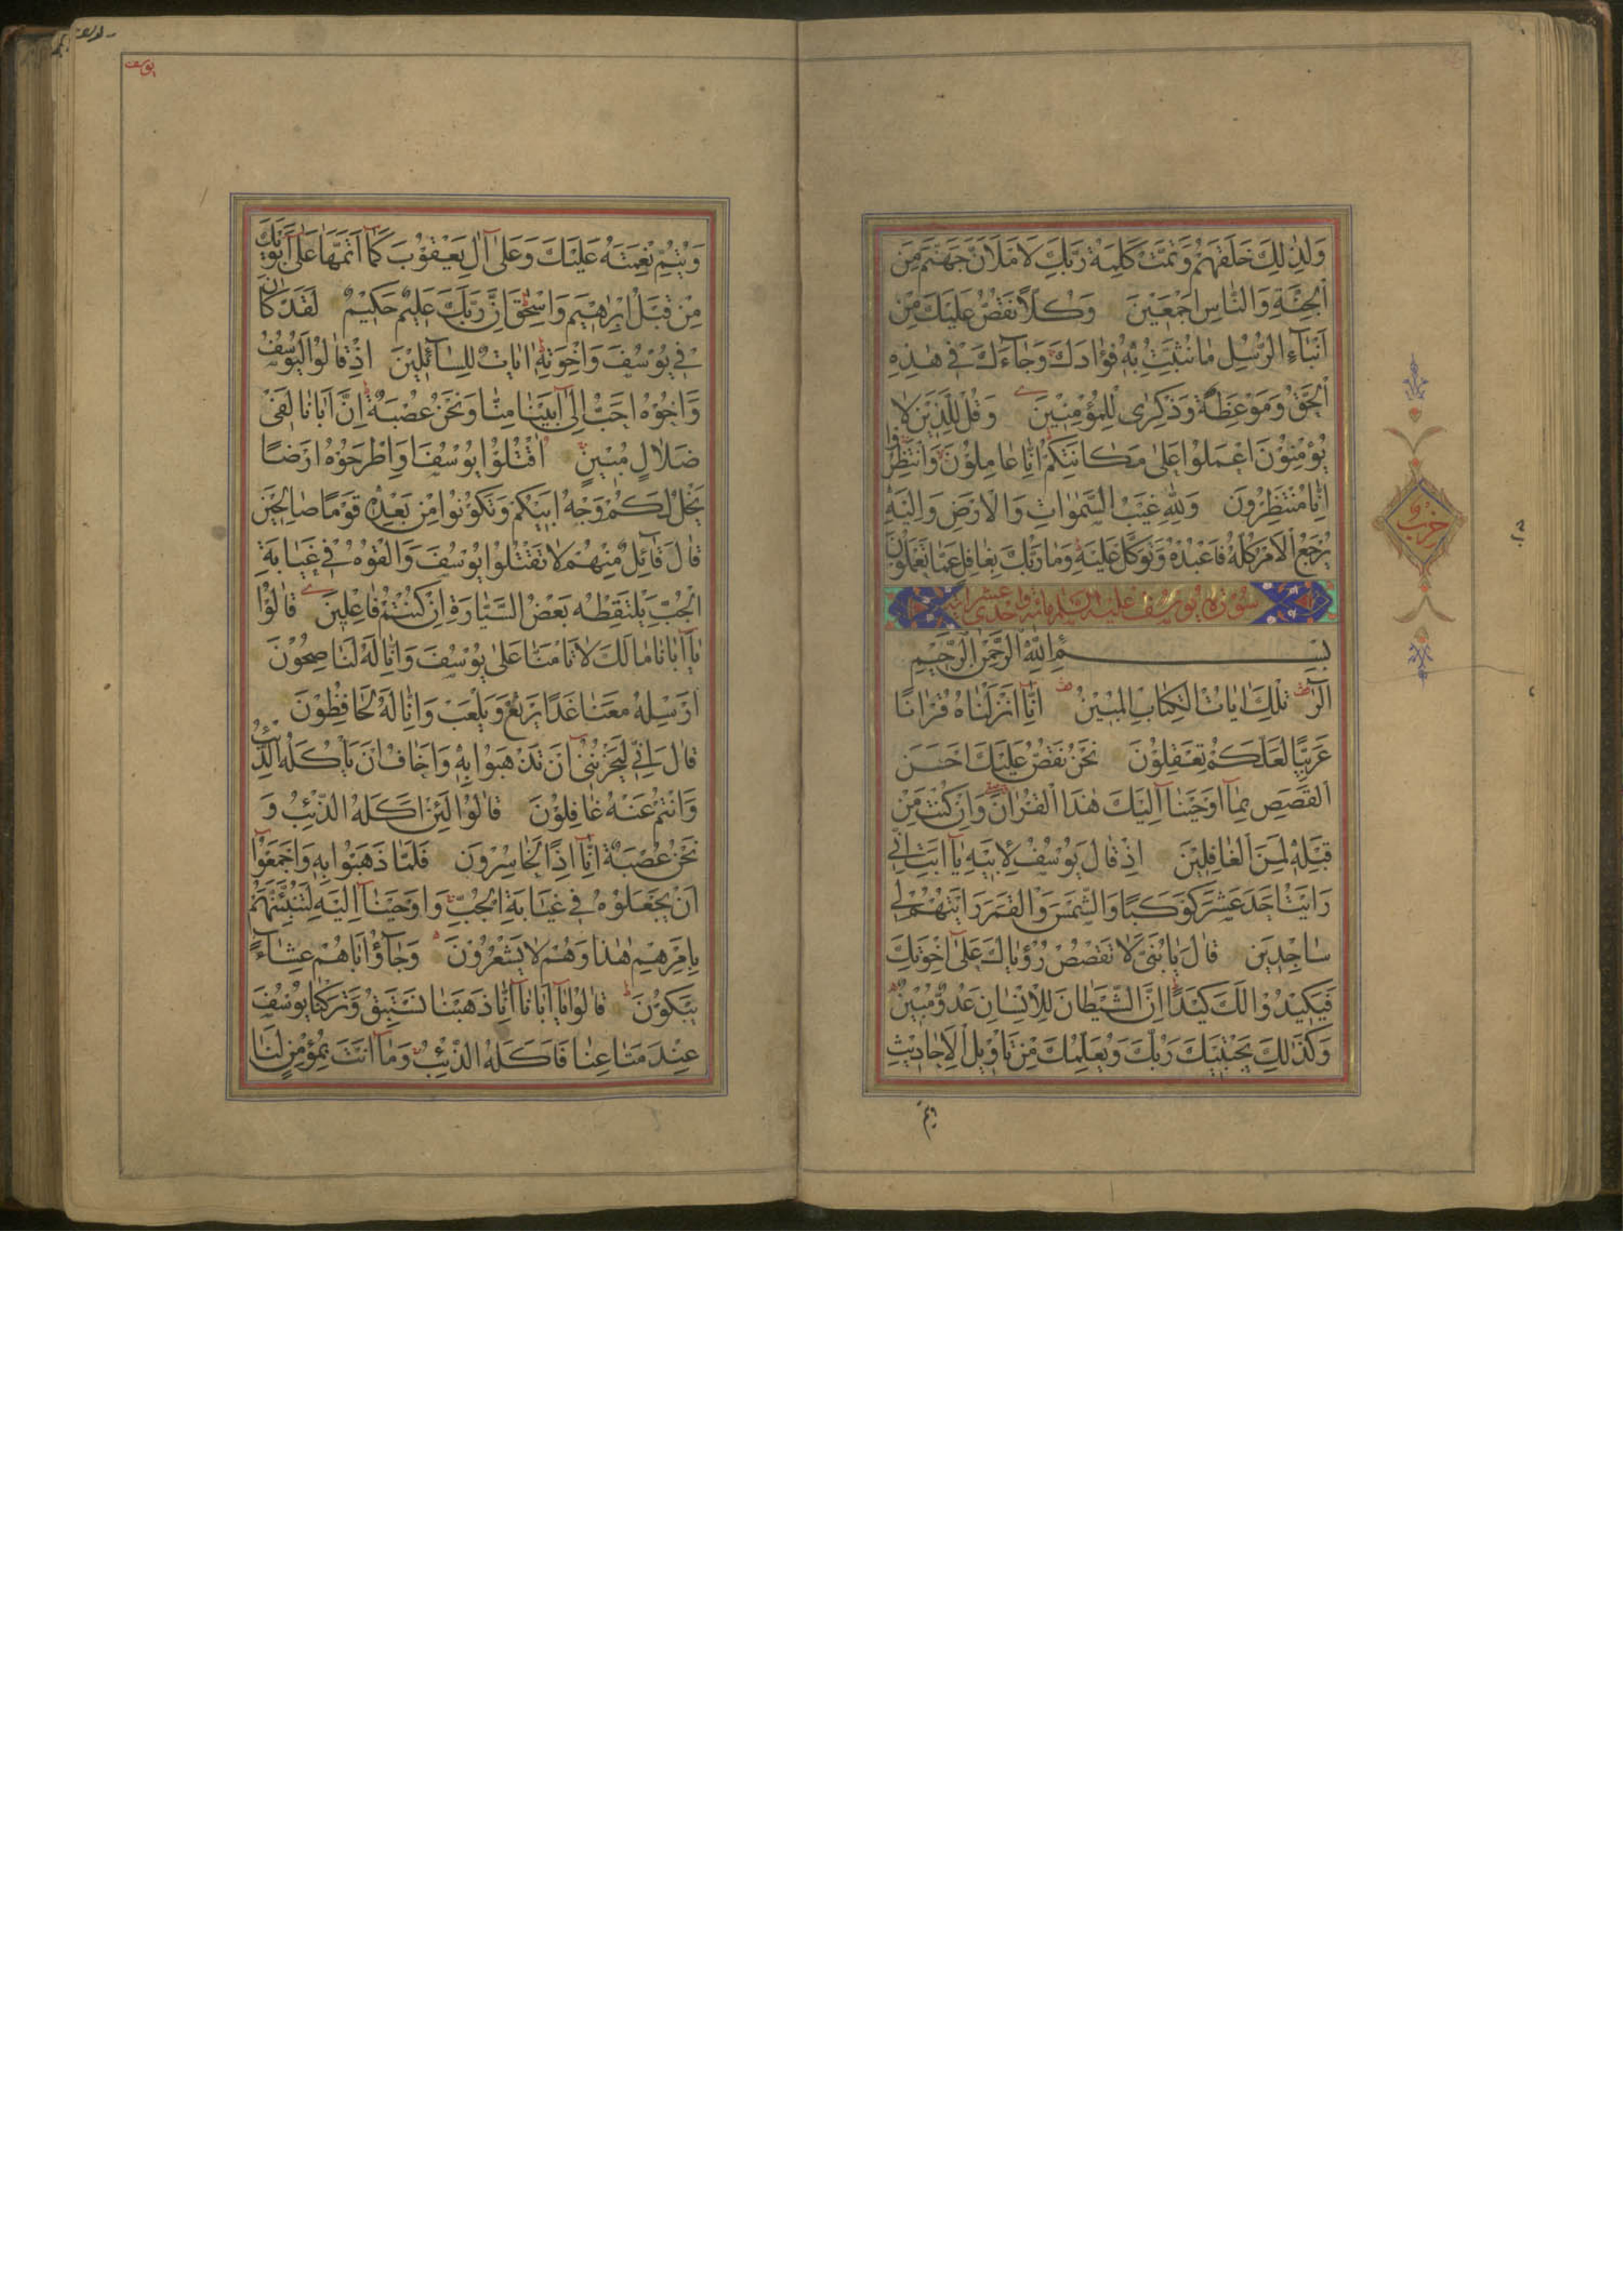 وَلِذٰلِكَ خَلَقَهُمْ وَتَمَّتْ كَلِمَةُ رَبِّكَ لَاَمْلَاَنَّ جَهَنَّمَ مِنَ
الْجِنَّةِ وَالنَّاسِ اَجْمَعِيْنَ وَكُلًّا نَقُصُّ عَلَيْكَ مِنْ
اَنْبَآءِ الرُّسُلِ مَا نُثَبِّتُ بِهٖ فُؤَادَكَ وَجَآءَكَ فِي هٰذِهِ
الْحَقُّ وَمَوْعِظَةٌ وَذِكْرٰى لِلْمُؤْمِنِيْنَ وَقُلْ لِلَّذِيْنَ لَا
يُؤْمِنُوْنَ اعْمَلُوا عَلٰى مَكَانَتِكُمْ اِنَّا عَامِلُوْنَ وَانْتَظِرُوا
اِنَّا مُنْتَظِرُونَ وَلِلّٰهِ غَيْبُ السَّمٰوَاتِ وَالْاَرْضِ وَاِلَيْهِ
يُرْجَعُ الْاَمْرُ كُلُّهُ فَاعْبُدْهُ وَتَوَكَّلْ عَلَيْهِ وَمَا رَبُّكَ بِغَافِلٍ عَمَّا تَعْمَلُوْنَ
سورة يوسف عليه السلام مائة واحدى عشر اية
بِسْمِ اللّٰهِ الرَّحْمٰنِ الرَّحِيْمِ
الٓرٰ تِلْكَ اٰيَاتُ الْكِتَابِ الْمُبِيْنِ اِنَّآ اَنْزَلْنَاهُ قُرْاٰنًا
عَرَبِيًّا لَعَلَّكُمْ تَعْقِلُوْنَ نَحْنُ نَقُصُّ عَلَيْكَ اَحْسَنَ
الْقَصَصِ بِمَآ اَوْحَيْنَآ اِلَيْكَ هٰذَا الْقُرْاٰنَ وَاِنْ كُنْتَ مِنْ
قَبْلِهٖ لَمِنَ الْغَافِلِيْنَ اِذْ قَالَ يُوْسُفُ لِاَبِيْهِ يَآ اَبَتِ اِنِّي
رَاَيْتُ اَحَدَ عَشَرَ كَوْكَبًا وَالشَّمْسَ وَالْقَمَرَ رَاَيْتُهُمْ لِي
سَاجِدِيْنَ قَالَ يَا بُنَيَّ لَا تَقْصُصْ رُؤْيَاكَ عَلٰى اِخْوَتِكَ
فَيَكِيْدُوْا لَكَ كَيْدًا اِنَّ الشَّيْطَانَ لِلْاِنْسَانِ عَدُوٌّ مُبِيْنٌ
وَكَذٰلِكَ يَجْتَبِيْكَ رَبُّكَ وَيُعَلِّمُكَ مِنْ تَاْوِيْلِ الْاَحَادِيْثِ
حزب
يوسف
وَيُتِمُّ نِعْمَتَهُ عَلَيْكَ وَعَلٰى اٰلِ يَعْقُوْبَ كَمَآ اَتَمَّهَا عَلٰى اَبَوَيْكَ
مِنْ قَبْلُ اِبْرٰهِيْمَ وَاِسْحٰقَ اِنَّ رَبَّكَ عَلِيْمٌ حَكِيْمٌ لَقَدْ كَانَ
فِي يُوْسُفَ وَاِخْوَتِهٖ اٰيَاتٌ لِلسَّآئِلِيْنَ اِذْ قَالُوْا لَيُوْسُفُ
وَاَخُوْهُ اَحَبُّ اِلٰى اَبِيْنَا مِنَّا وَنَحْنُ عُصْبَةٌ اِنَّ اَبَانَا لَفِي
ضَلَالٍ مُبِيْنٍ اُقْتُلُوْا يُوْسُفَ اَوِ اطْرَحُوْهُ اَرْضًا
يَخْلُ لَكُمْ وَجْهُ اَبِيْكُمْ وَتَكُوْنُوا مِنْ بَعْدِهٖ قَوْمًا صَالِحِيْنَ
قَالَ قَآئِلٌ مِنْهُمْ لَا تَقْتُلُوا يُوْسُفَ وَاَلْقُوْهُ فِي غَيَابَةِ
الْجُبِّ يَلْتَقِطْهُ بَعْضُ السَّيَّارَةِ اِنْ كُنْتُمْ فَاعِلِيْنَ قَالُوْا
يَآ اَبَانَا مَا لَكَ لَا تَاْمَنَّا عَلٰى يُوْسُفَ وَاِنَّا لَهُ لَنَاصِحُوْنَ
اَرْسِلْهُ مَعَنَا غَدًا يَرْتَعْ وَيَلْعَبْ وَاِنَّا لَهُ لَحَافِظُوْنَ
قَالَ اِنِّي لَيَحْزُنُنِي اَنْ تَذْهَبُوْا بِهٖ وَاَخَافُ اَنْ يَاْكُلَهُ الذِّئْبُ
وَاَنْتُمْ عَنْهُ غَافِلُوْنَ قَالُوْا لَئِنْ اَكَلَهُ الذِّئْبُ وَ
نَحْنُ عُصْبَةٌ اِنَّآ اِذًا لَخَاسِرُوْنَ فَلَمَّا ذَهَبُوْا بِهٖ وَاَجْمَعُوْآ
اَنْ يَجْعَلُوْهُ فِي غَيَابَةِ الْجُبِّ وَاَوْحَيْنَآ اِلَيْهِ لَتُنَبِّئَنَّهُمْ
بِاَمْرِهِمْ هٰذَا وَهُمْ لَا يَشْعُرُوْنَ وَجَآؤُا اَبَاهُمْ عِشَآءً
يَبْكُوْنَ قَالُوْا يَآ اَبَانَآ اِنَّا ذَهَبْنَا نَسْتَبِقُ وَتَرَكْنَا يُوْسُفَ
عِنْدَ مَتَاعِنَا فَاَكَلَهُ الذِّئْبُ وَمَآ اَنْتَ بِمُؤْمِنٍ لَنَا